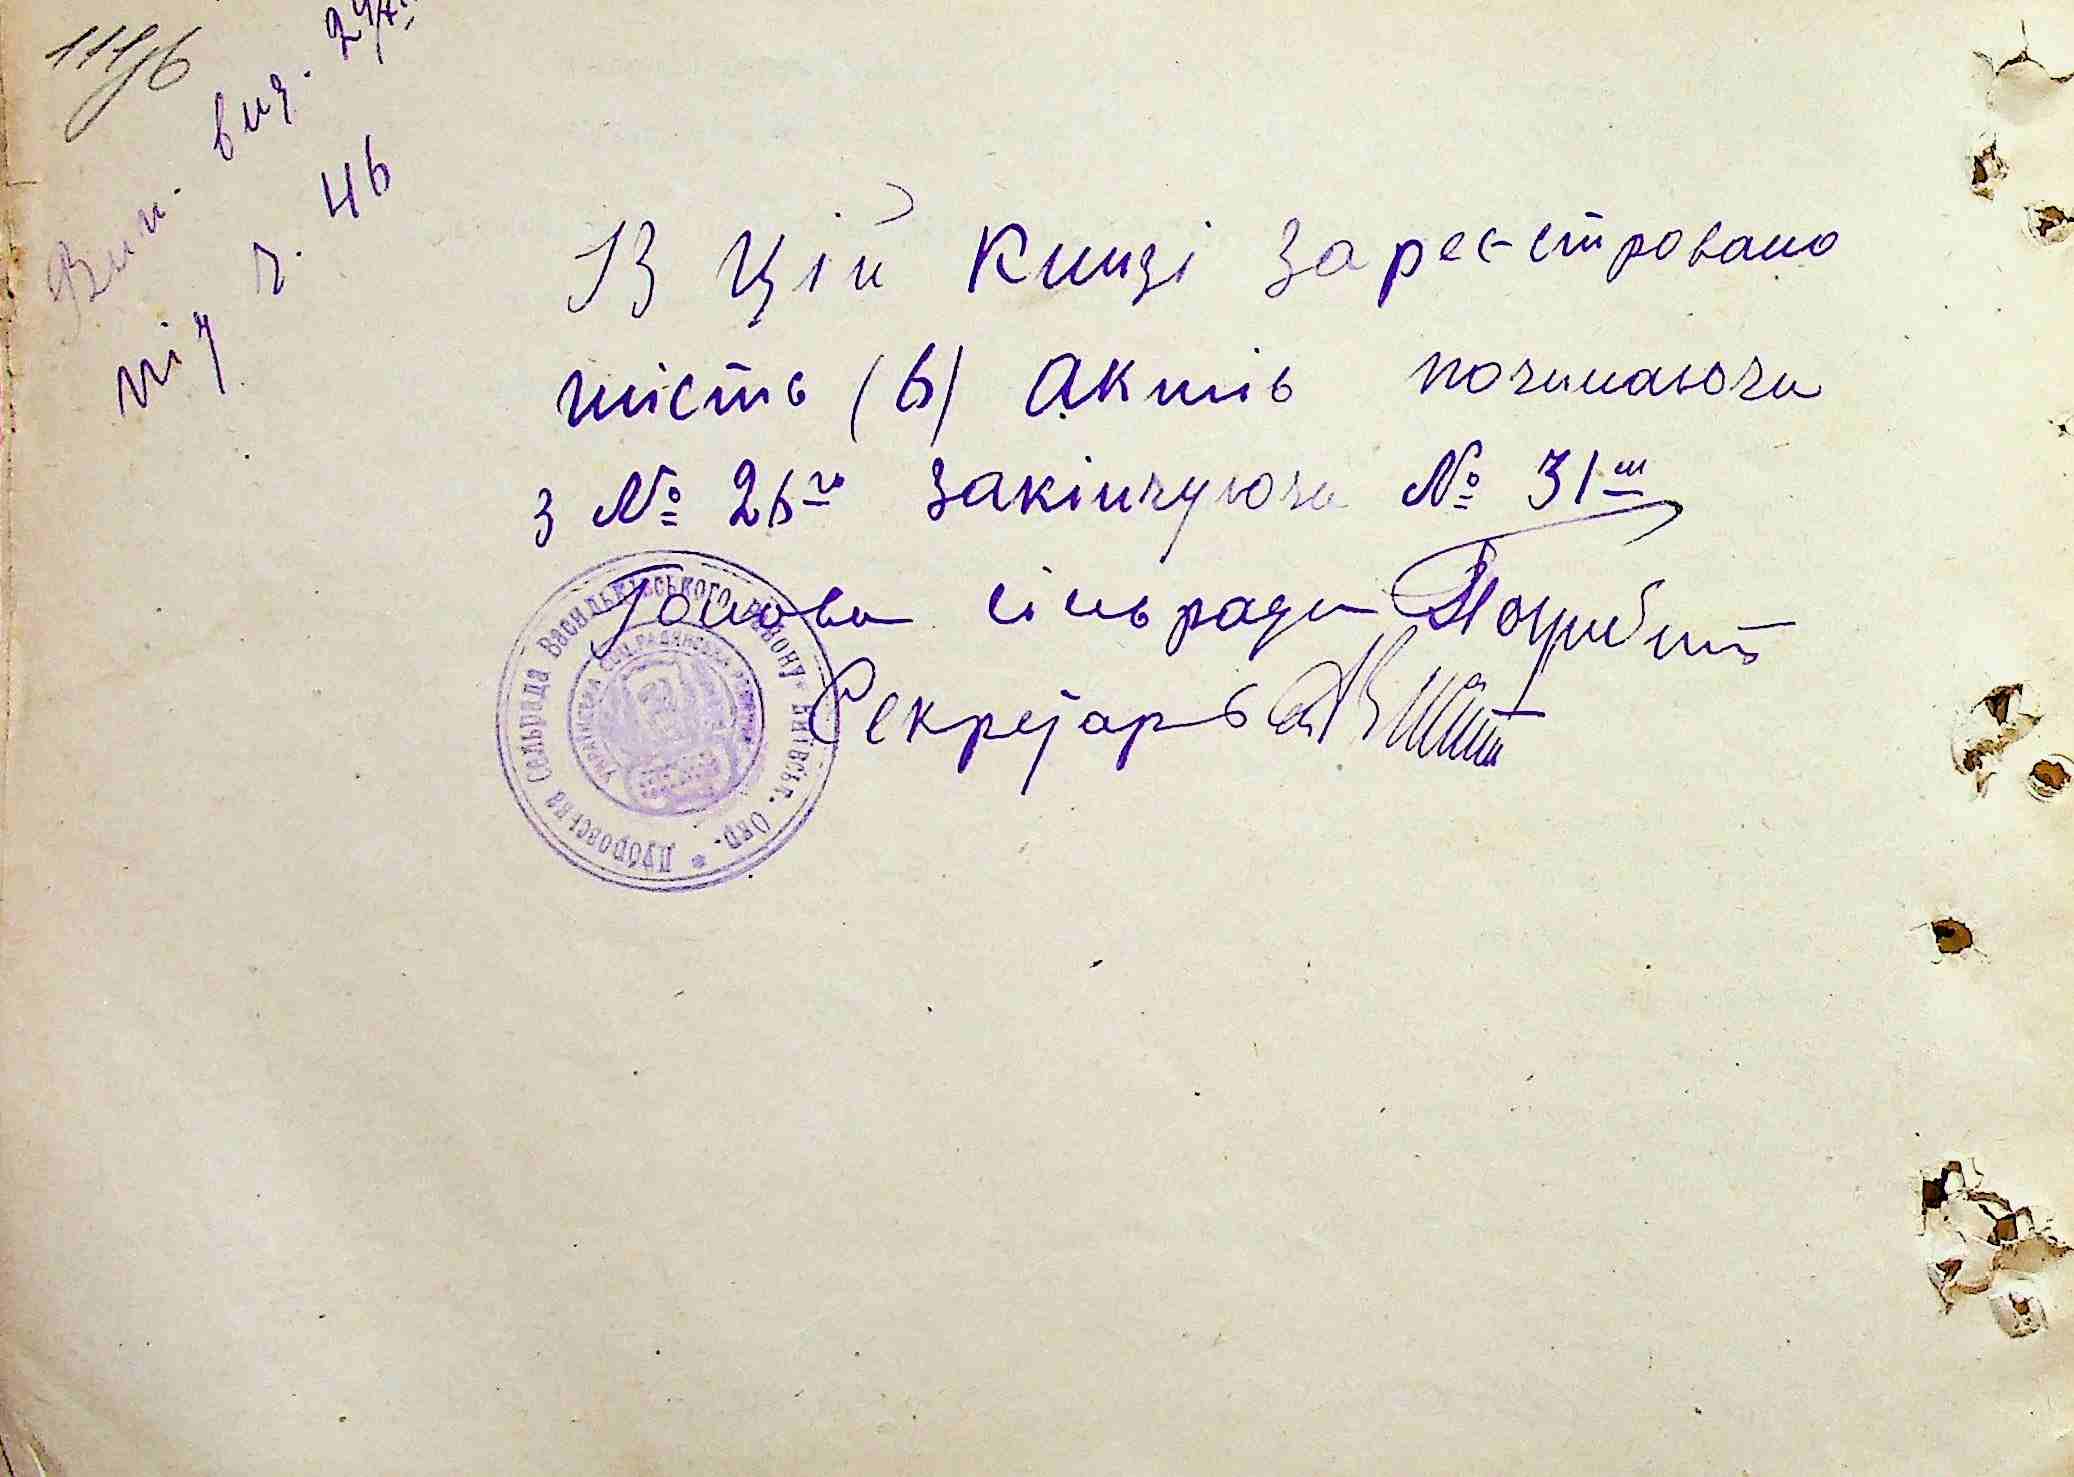 111/6
Вип. вид.
під ч. 46
В цій книзі зареєстровано
шість (6) актів починаючи
з № 26го закінчуючи № 31м
Голова сільради
Секретарь
Дубровська Сельрада Васильківського Району * Київськ. Окр. *
Українська Соц. Радянська